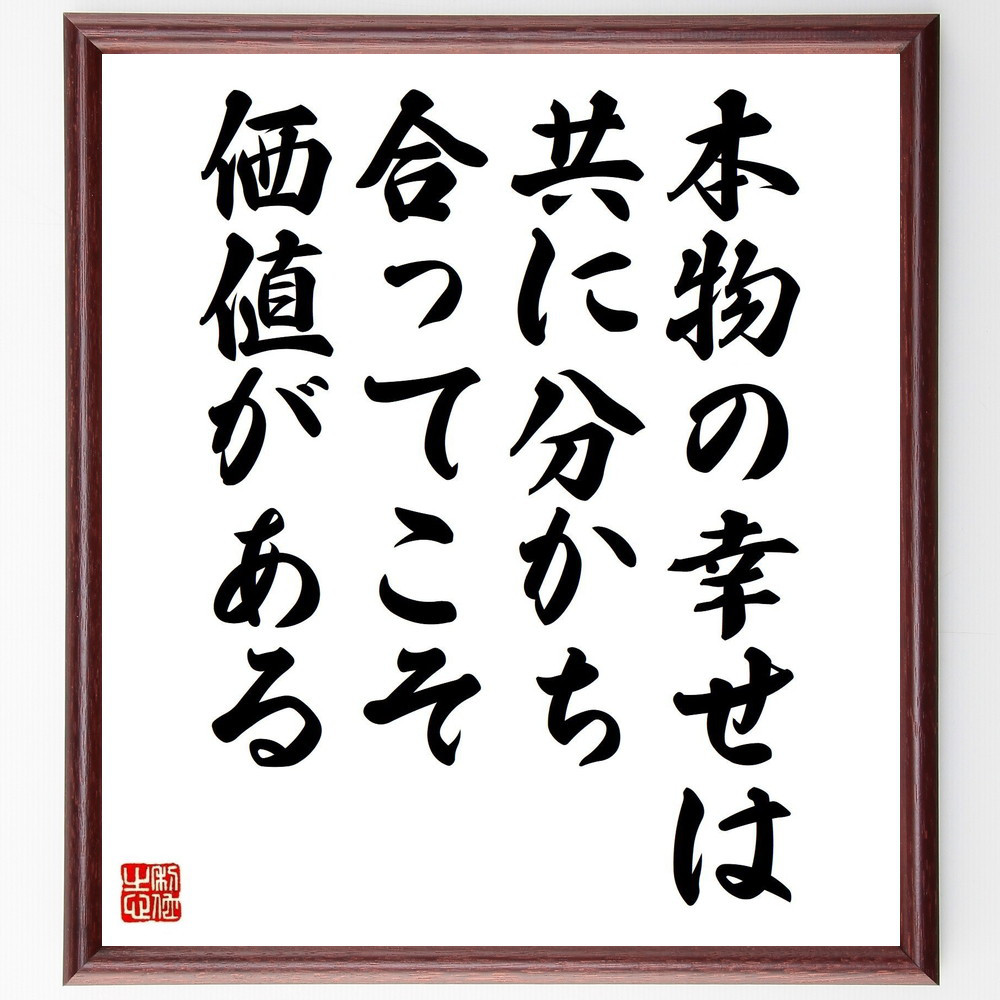 本物の幸せは
共に分かち
合ってこそ
価値がある